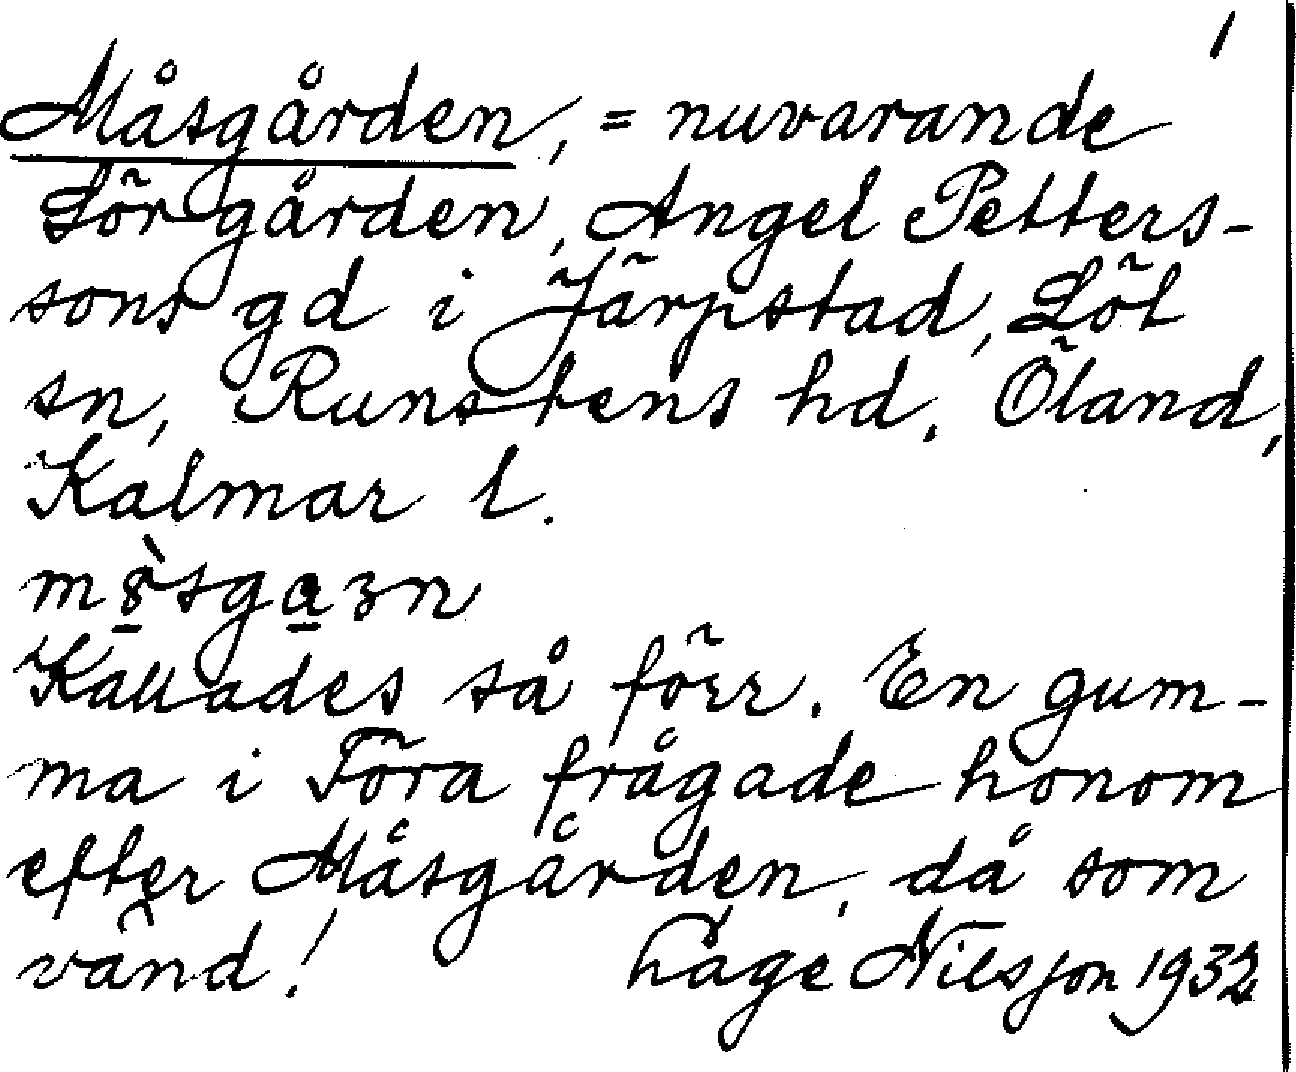 1
Måsgården, = nuvarande
Sörgården, Angel Petters-
sons gd i Järpstad, Löt
sn, Runstens hd, Öland,
Kalmar l.
Kallades så förr. En gum-
ma i Föra frågade honom
efter Måsgården, då som
vänd! Låge Nilsson 1932